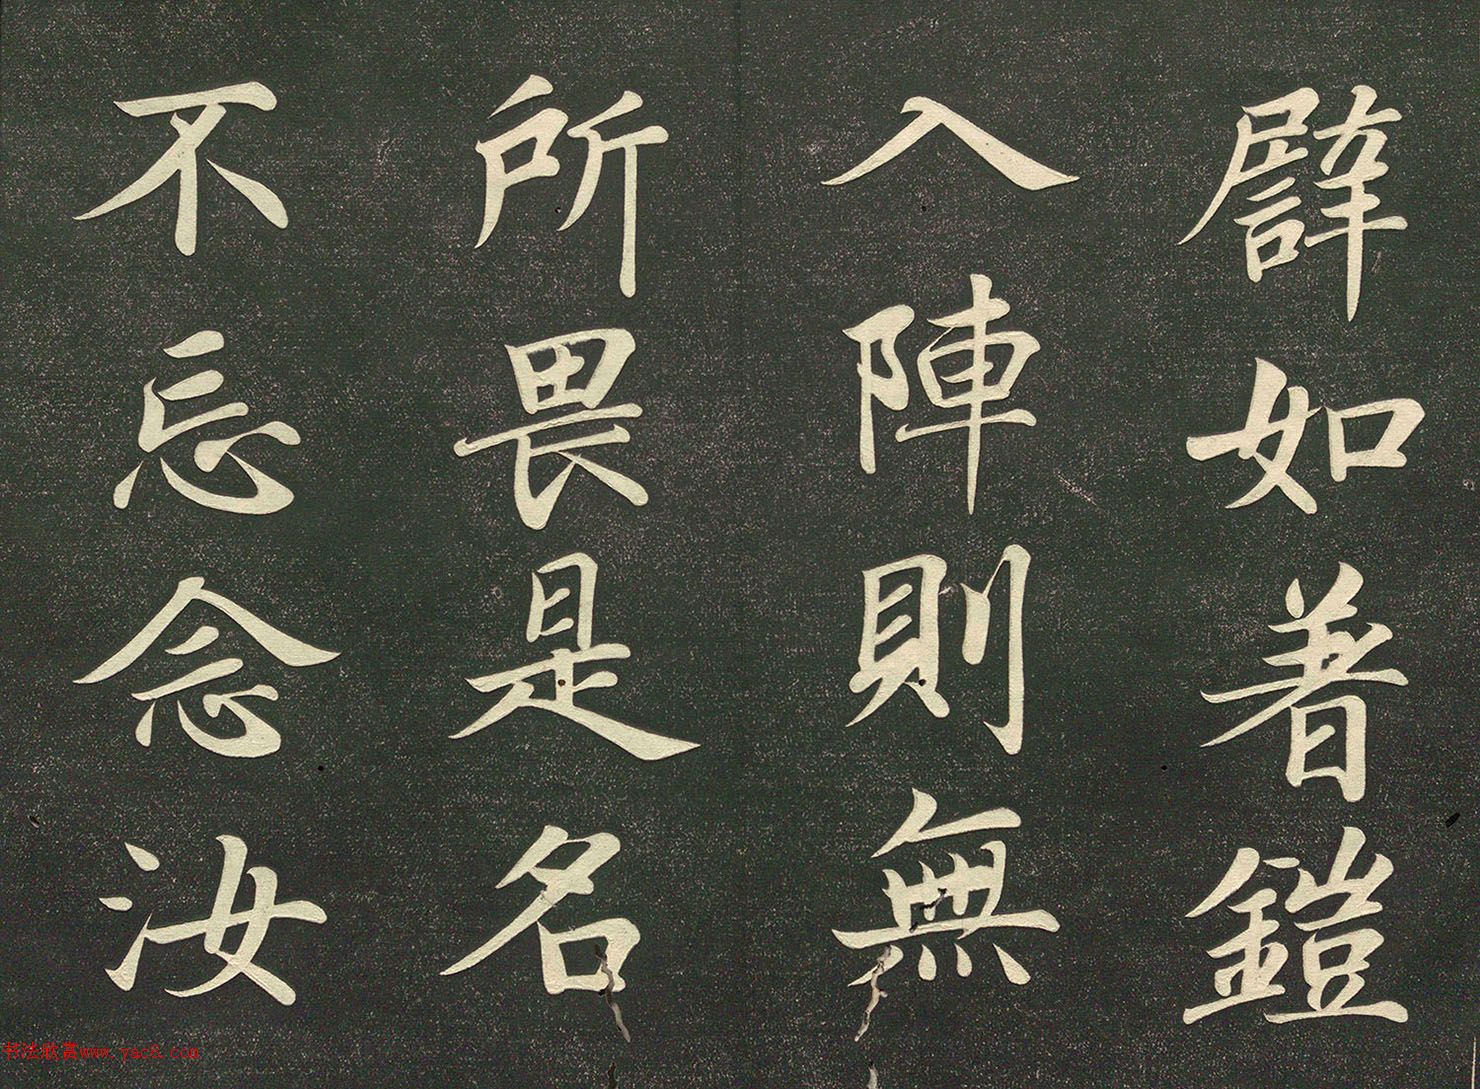 譬如著鎧
入陣則無
所畏是名
不忘念汝
书法欣赏www.yac8.com